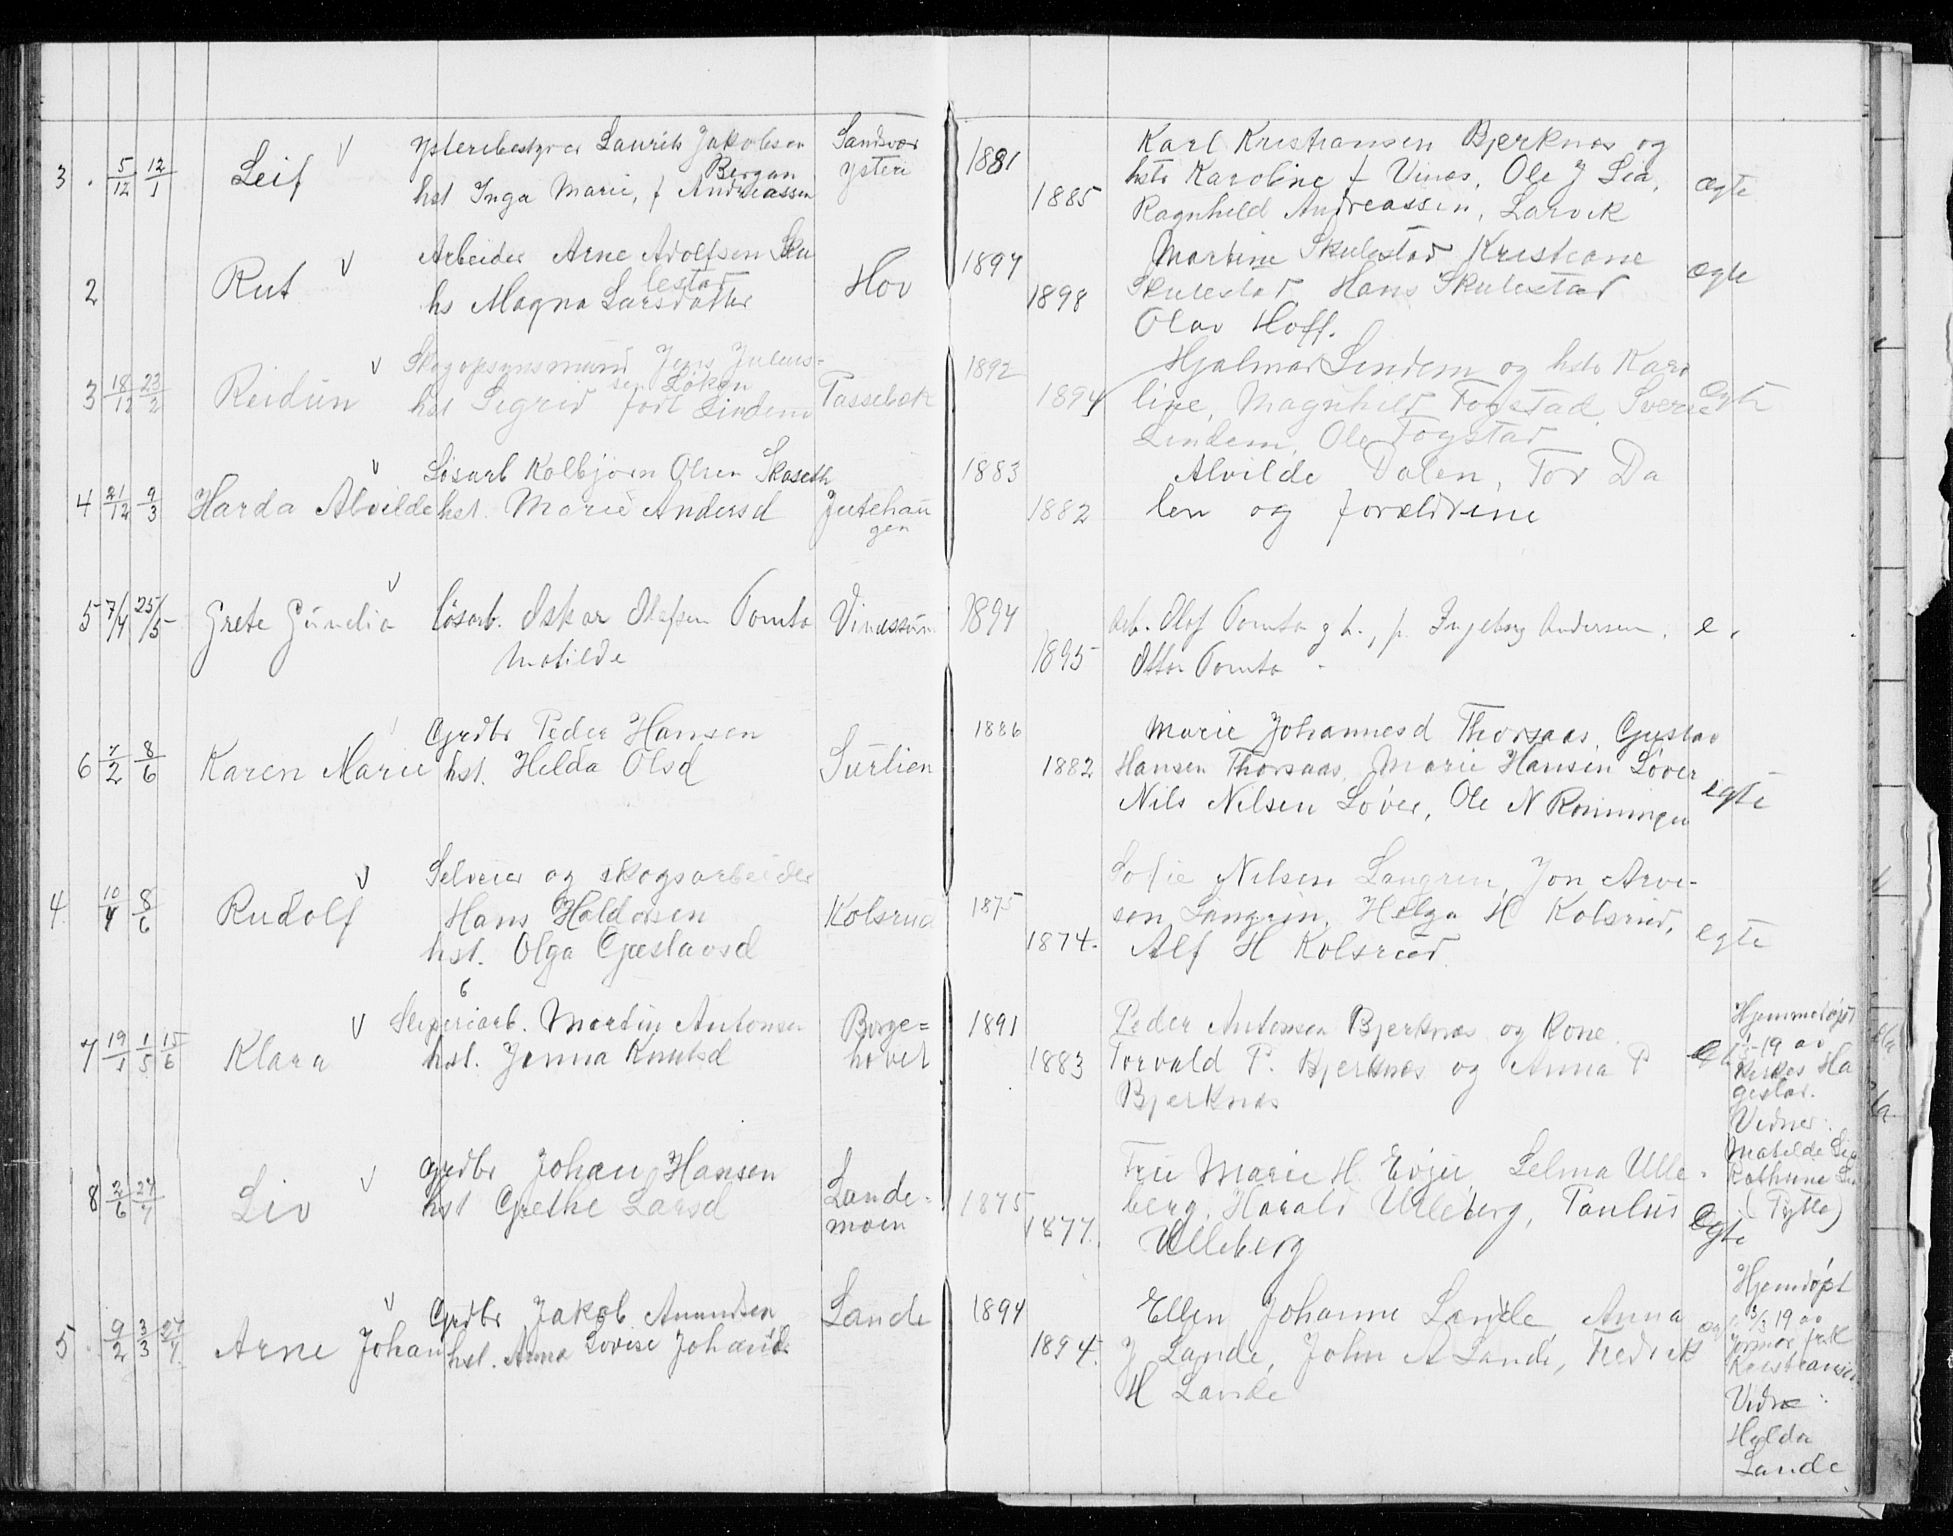 3 . 5/12 12/1 Leif v Ysteribestyrer Laurits Jakobsen Bergan
hst Inga Marie, f Andreassen
Sandsvær
Ysteri
1881
1885
Karl Kristiansen Bjerknæs og
hstr Karoline f Vinæs, Ole J Lia,
Ragnhild Andreassen, Larvik
ægte
2 Rut v Arbeider Arne Adolfsen Sku
lestad
hs Magna Larsdatter
Hov
1897
1898
Martine Skulestad Kristiane
Skulestad Hans Skulestad
Olav Hoff.
ægte
3 18/12 23/2 Reidun v Skogopsynsmand Jens Julius-
sen Løken
hst Sigrid født Lindem
Passebæk
1892
1894
Hjalmar Lindem og hstr Karo
line, Magnhild Fogstad, Sverre
Lindem, Ole Fogstad
Egte
4 21/12 9/3 Harda Alvilde v Løsarb Kolbjørn Olsen Skaseth
hst. Marie Andersd
Jutehau
gen
1883
1882
Alvilde Dalen, Tor Da
len og forældrene
5 7/4 25/5 Grete Gunelia v løsarb. Oskar Olafsen Tomta
Matilde
1894
1895
Arb. Olof Tomta g h., p. Ingeborg Andersen,
Otto Tomta
e.
6 7/2 8/6 Karen Marie Grdbr Peder Hansen
hst. Helda Olsd
Surlien
1886
1882
Marie Johannesd Thorsaas, Gustav
Hansen Thorsaas, Marie Hansen Løver
Nils Nilsen Løver, Ole N Rønningen
egte
4. 10/4 8/6 Rudolf v Selveier og skogsarbeider
Hans Haldorsen
hst. Olga Gustavsd
Kolsrud
1875
1874.
Sofie Nilsen Langren, Jon Arve-
sen Langren, Helga H Kolsrud,
Alf H Kolsrud
egte
7 19/1 1/5 15/6 Klara v Sliperiarb. Martin Antonsen
hst. Jenna Knutsd
Borge=
hovet
1891
1883
Peder Andersen Bjerknæs og kone
Torvald P. Bjerknæs og Anna P
Bjerknæs
Hjemmedøpt
1/5-19 av
Hagestar.
Vidner:
Matilde Lia
Kathrine Lia
8 2/6 27/7 Liv v grdbr Johan Hansen
hst Grethe Larsd
Lande-
moen
1875
1877.
Fru Marie H. Evju, Selma Ulle-
berg, Harald Ulleberg, Paulus
Ulleberg
Egte
5. 9/2 3/3 27/7 Arne Johan v Grdbr Jakob Amundsen
hst. Anna Lovise Johansd
Lande
1894
1894.
Ellen Johanne Lande, Anna
J Lande, John A Lande, Fredrik
H Lande
Hjemdøpt
3/3 19 av
jormor frk
Kristiansen
Vidne:
Hylda
Lande